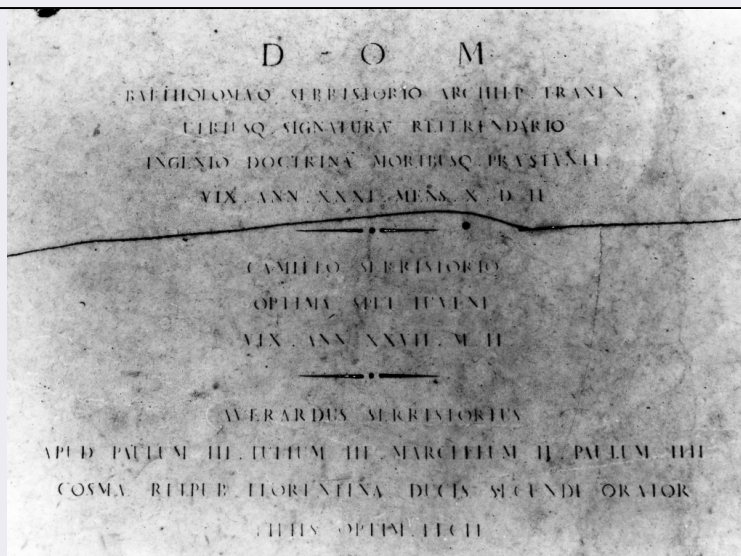 D O M
BARTHOLOMAEO SERRISTORIO ARCHIEP. TRANEN.
UTRIUSQ. SIGNATURAE REFERENDARIO
INGENIO DOCTRINA MORIBUSQ. PRAESTANTI.
VIX. ANN. XXXI. MENS. X. D. II
CAMILLO SERRISTORIO
OPTIMAE SPEI IUVENI
VIX. ANN. XXVII. M. II
AVERARDUS SERRISTORIUS
APUD PAULUM III. IULIUM III. MARCELLUM II. PAULUM IIII
COSMAE REIPUB. FLORENTINAE DUCIS SECUNDI ORATOR
FILIIS OPTIM. FECIT